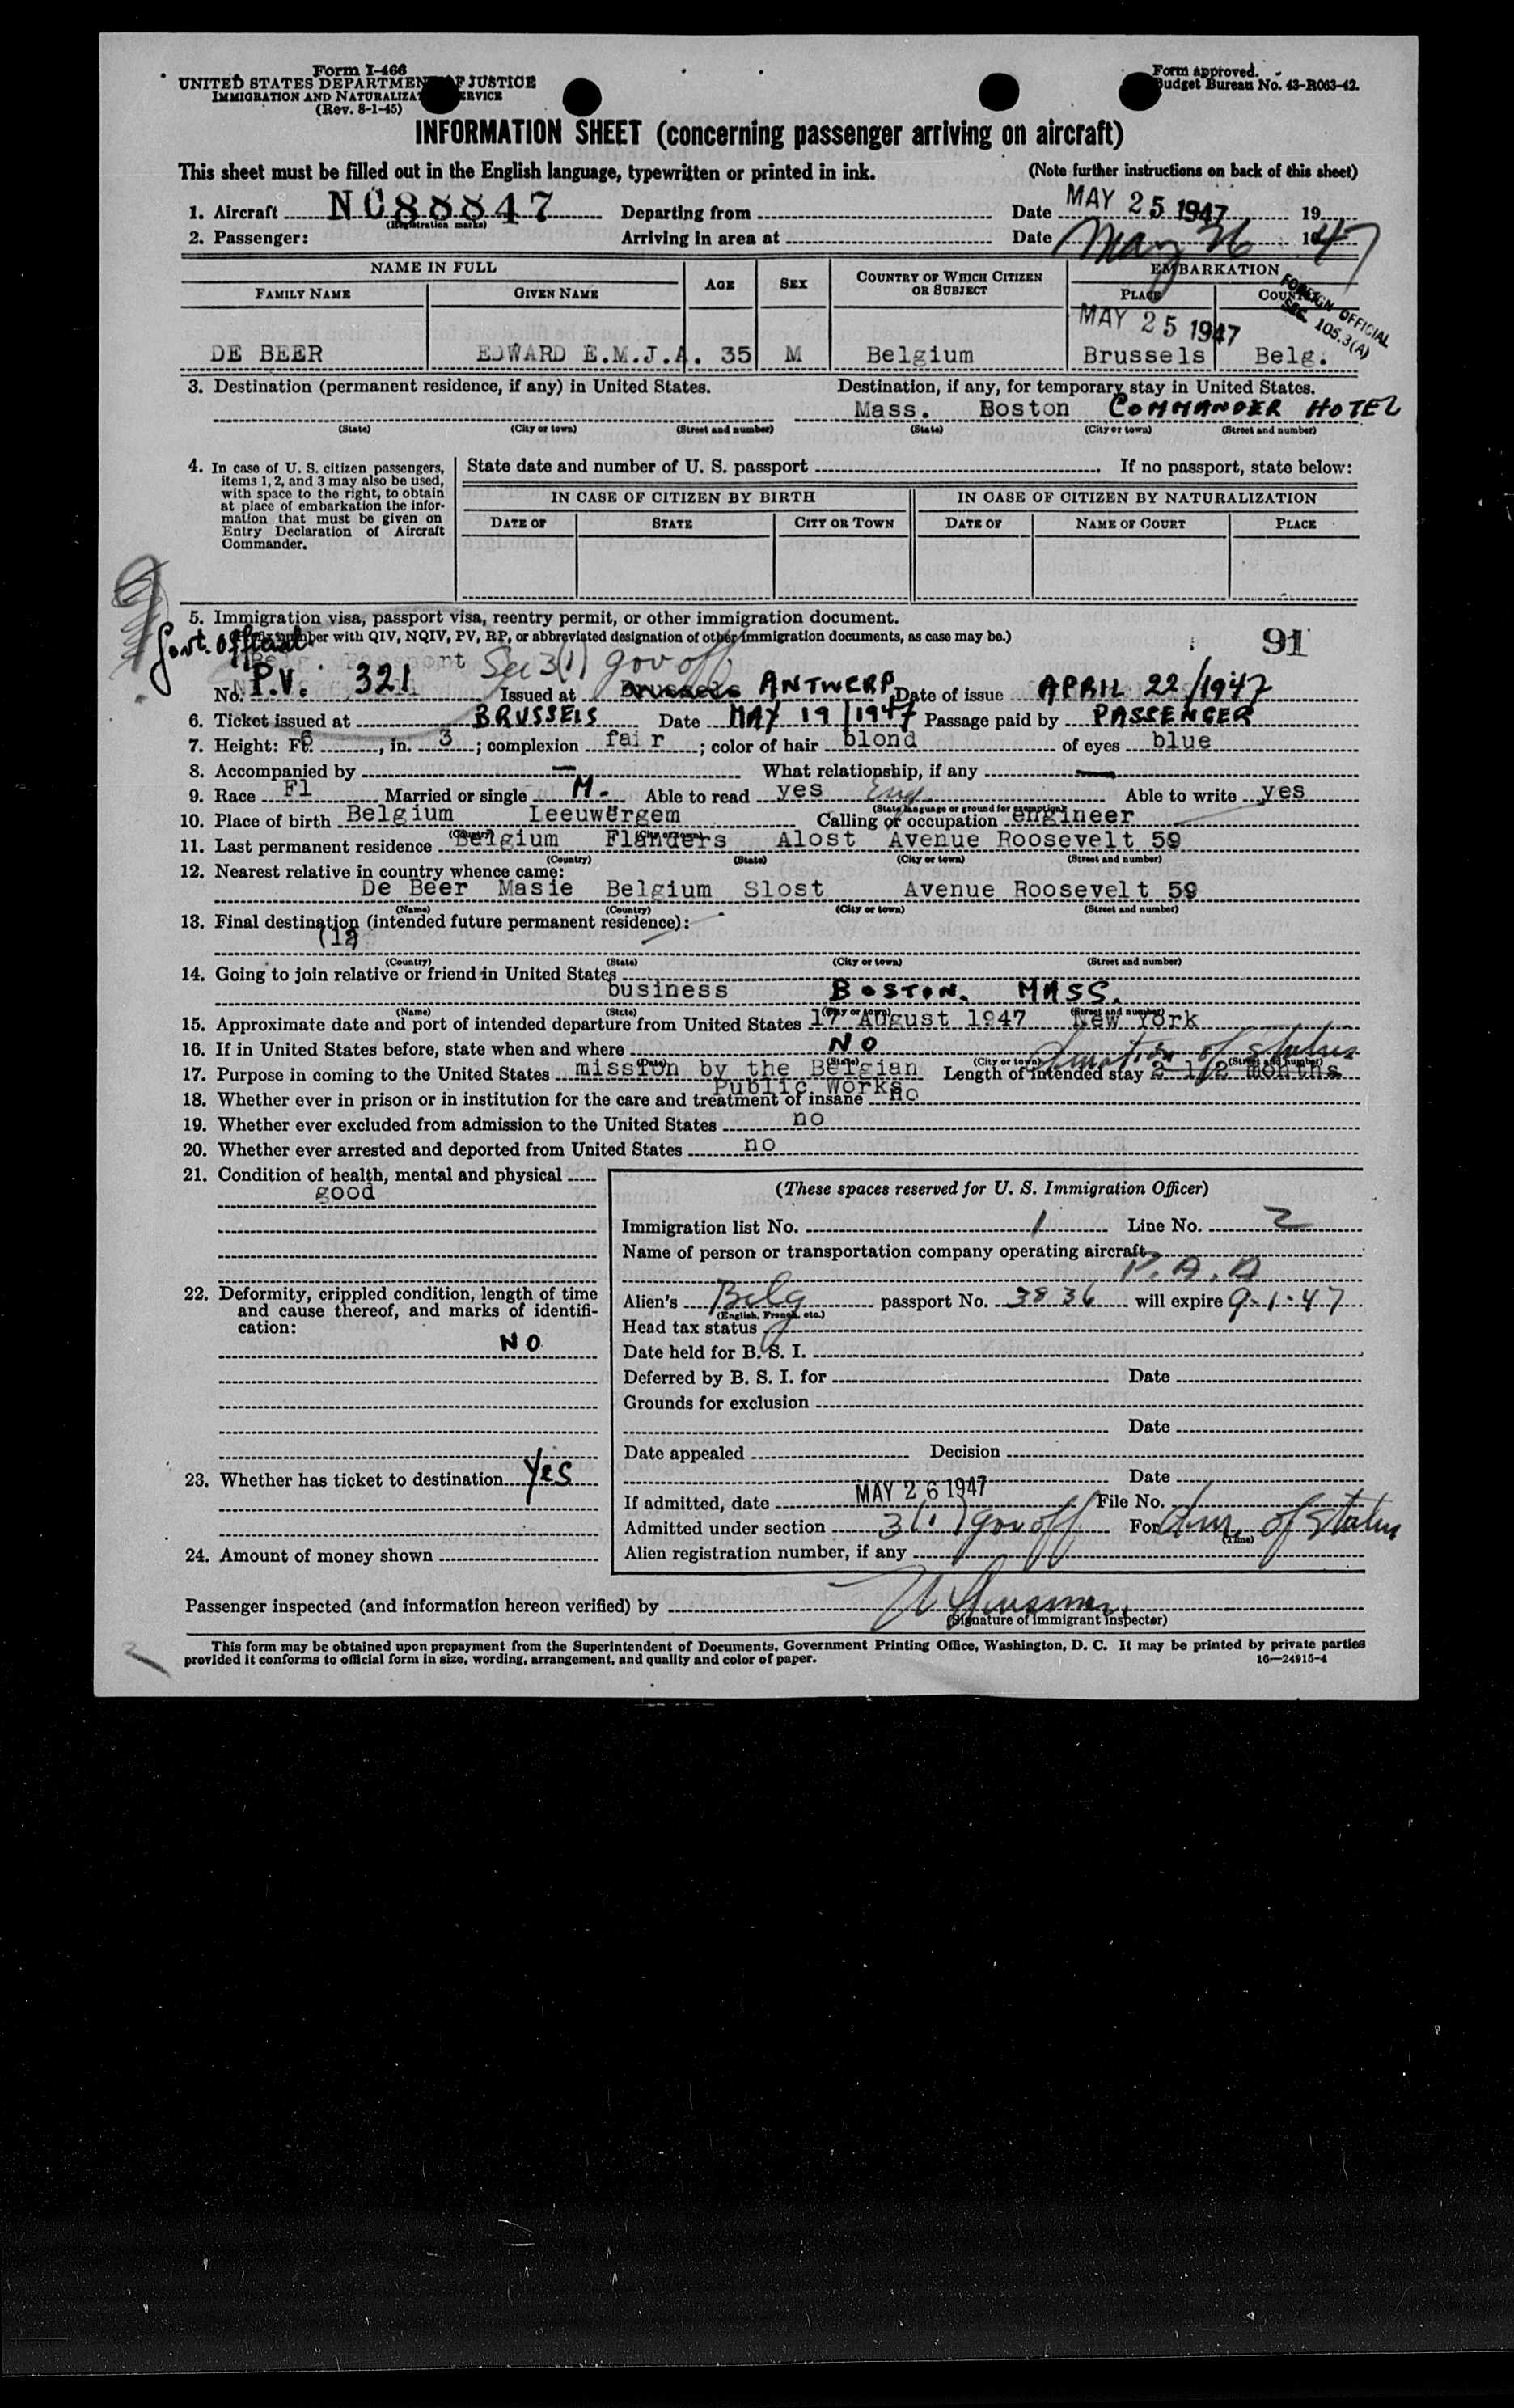 Form I-466
UNITED STATES DEPARTMENT OF JUSTICE
IMMIGRATION AND NATURALIZATION SERVICE
(Rev. 8-1-45)
Form approved.
Budget Bureau No. 43-R063-42.
INFORMATION SHEET (concerning passenger arriving on aircraft)
This sheet must be filled out in the English language, typewritten or printed in ink. (Note further instructions on back of this sheet)
1. Aircraft NC88847 Departing from Date MAY 25 1947 19
(Registration marks)
2. Passenger: Arriving in area at Date May 26 1947
NAME IN FULL AGE SEX COUNTRY OF WHICH CITIZEN OR SUBJECT EMBARKATION
FAMILY NAME GIVEN NAME PLACE COUNTRY
FOREIGN OFFICIAL
SEC. 105.3(A)
MAY 25 1947
DE BEER EDWARD E.M.J.A. 35 M Belgium Brussels Belg.
3. Destination (permanent residence, if any) in United States. Destination, if any, for temporary stay in United States.
Mass. Boston COMMANDER HOTEL
(State) (City or town) (Street and number) (State) (City or town) (Street and number)
4. In case of U. S. citizen passengers, items 1, 2, and 3 may also be used, with space to the right, to obtain at place of embarkation the information that must be given on Entry Declaration of Aircraft Commander.
State date and number of U. S. passport If no passport, state below:
IN CASE OF CITIZEN BY BIRTH IN CASE OF CITIZEN BY NATURALIZATION
DATE OF STATE CITY OR TOWN DATE OF NAME OF COURT PLACE
5. Immigration visa, passport visa, reentry permit, or other immigration document.
number with QIV, NQIV, PV, RP, or abbreviated designation of other immigration documents, as case may be.) 91
Govt. Official
Sec 3(1) gov off
No. P.V. 321 Issued at Brussels ANTWERP Date of issue APRIL 22/1947
6. Ticket issued at BRUSSELS Date MAY 19 1947 Passage paid by PASSENGER
7. Height: Ft. 6, in. 3; complexion fair; color of hair blond of eyes blue
8. Accompanied by — What relationship, if any —
9. Race Fl Married or single M. Able to read yes Eng. Able to write yes
(State language or ground for exemption)
10. Place of birth Belgium Leeuwergem Calling or occupation engineer
(Country) (City or town)
11. Last permanent residence Belgium Flanders Alost Avenue Roosevelt 59
(Country) (State) (City or town) (Street and number)
12. Nearest relative in country whence came:
De Beer Masie Belgium Slost Avenue Roosevelt 59
(Name) (Country) (City or town) (Street and number)
13. Final destination (intended future permanent residence):
(Country) (State) (City or town) (Street and number)
14. Going to join relative or friend in United States
business BOSTON. MASS.
(Name) (State) (City or town) (Street and number)
15. Approximate date and port of intended departure from United States 17 August 1947 New York
16. If in United States before, state when and where NO
(Date) (State) (City or town) (Street and number)
duration of status
17. Purpose in coming to the United States mission by the Belgian Length of intended stay 2 1/2 months
Public Works
18. Whether ever in prison or in institution for the care and treatment of insane no
19. Whether ever excluded from admission to the United States no
20. Whether ever arrested and deported from United States no
21. Condition of health, mental and physical
good
22. Deformity, crippled condition, length of time and cause thereof, and marks of identification:
NO
23. Whether has ticket to destination Yes
24. Amount of money shown
(These spaces reserved for U. S. Immigration Officer)
Immigration list No. 1 Line No. 2
Name of person or transportation company operating aircraft
P.A.A
Alien's Belg passport No. 3836 will expire 9-1-47
(English, French, etc.)
Head tax status
Date held for B. S. I.
Deferred by B. S. I. for Date
Grounds for exclusion
Date
Date appealed Decision
Date
If admitted, date MAY 26 1947 File No.
Admitted under section 3(1) gov off For dur. of status
(Time)
Alien registration number, if any
Passenger inspected (and information hereon verified) by
(Signature of Immigrant Inspector)
This form may be obtained upon prepayment from the Superintendent of Documents, Government Printing Office, Washington, D. C. It may be printed by private parties
provided it conforms to official form in size, wording, arrangement, and quality and color of paper. 16—24915-4